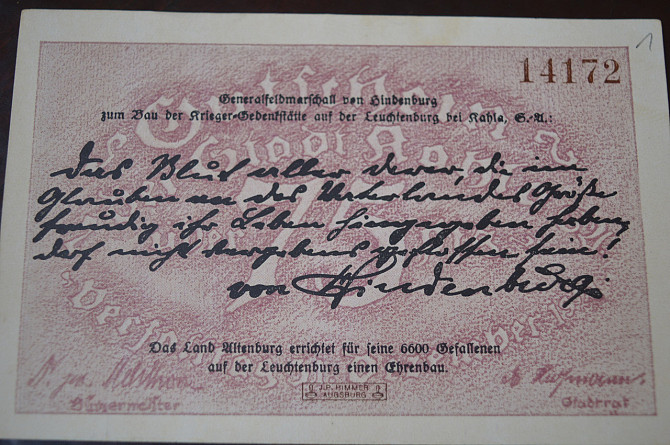 14172
1
Generalfeldmarschall von Hindenburg
zum Bau der Krieger-Gedenkstätte auf der Leuchtenburg bei Kahla, S.-A.:
Gutschein
Stadt
75
Das Blut aller derer, die im
Glauben an des Vaterlandes Größe
freudig ihr Leben hingegeben haben,
darf nicht vergebens geflossen sein!
von Hindenburg
Das Land Altenburg errichtet für seine 6600 Gefallenen
auf der Leuchtenburg einen Ehrenbau.
Bürgermeister
Stadtrat
J.P. HIMMER
AUGSBURG